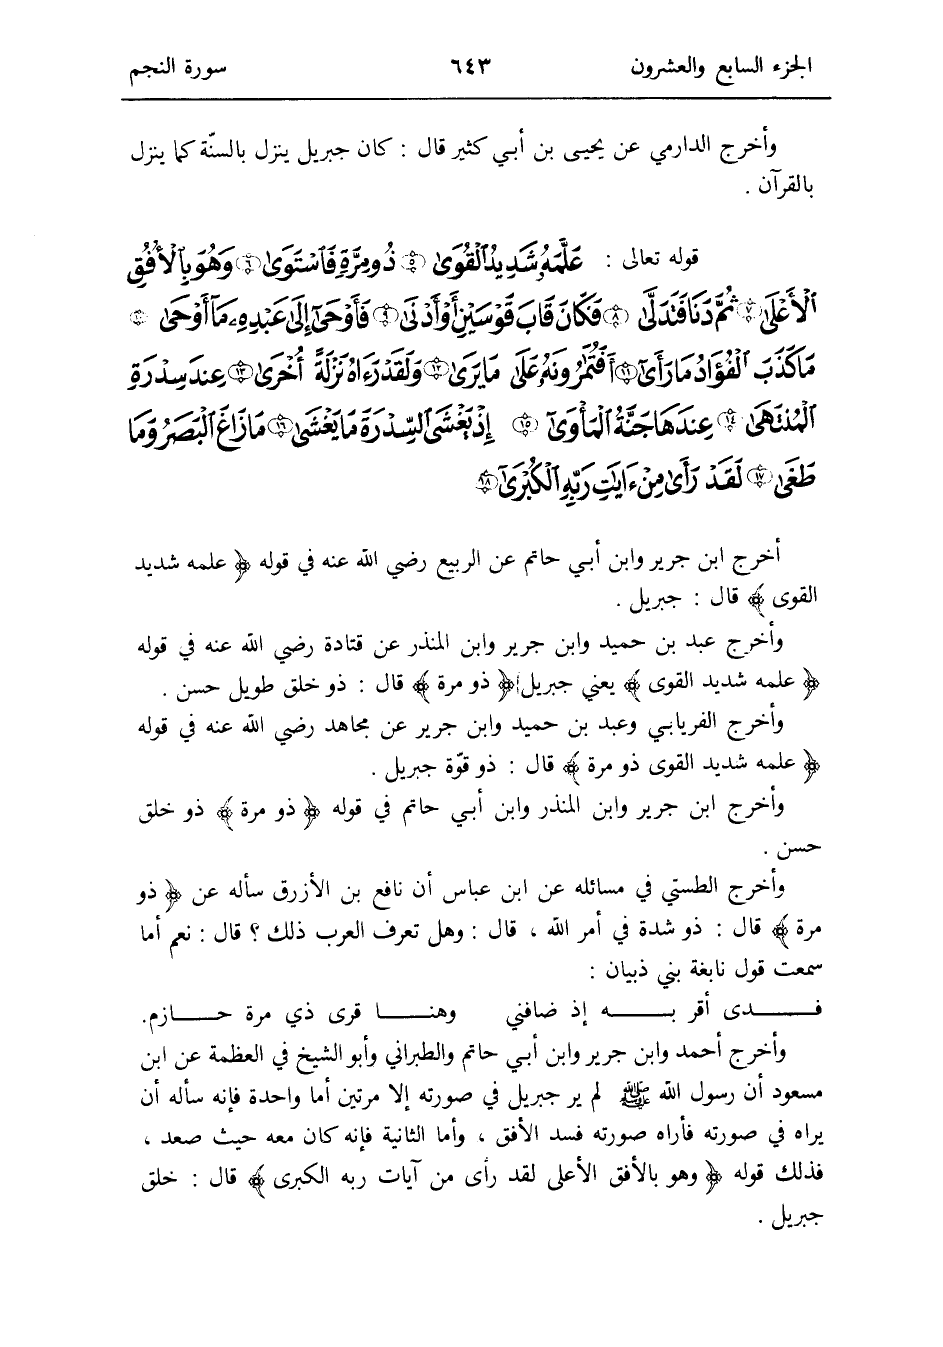 الجزء السابع والعشرون ٦٤٣ سورة النجم
وأخرج الدارمي عن يحيى بن أبي كثير قال : كان جبريل ينزل بالسنّة كما ينزل
بالقرآن .
قوله تعالى : عَلَّمَهُ شَدِيدُ الْقُوَىٰ ٥ ذُو مِرَّةٍ فَاسْتَوَىٰ ٦ وَهُوَ بِالْأُفُقِ
الْأَعْلَىٰ ٧ ثُمَّ دَنَا فَتَدَلَّىٰ ٨ فَكَانَ قَابَ قَوْسَيْنِ أَوْ أَدْنَىٰ ٩ فَأَوْحَىٰ إِلَىٰ عَبْدِهِ مَا أَوْحَىٰ ١٠
مَا كَذَبَ الْفُؤَادُ مَا رَأَىٰ ١١ أَفَتُمَارُونَهُ عَلَىٰ مَا يَرَىٰ ١٢ وَلَقَدْ رَءَاهُ نَزْلَةً أُخْرَىٰ ١٣ عِندَ سِدْرَةِ
الْمُنتَهَىٰ ١٤ عِندَهَا جَنَّةُ الْمَأْوَىٰ ١٥ إِذْ يَغْشَى السِّدْرَةَ مَا يَغْشَىٰ ١٦ مَا زَاغَ الْبَصَرُ وَمَا
طَغَىٰ ١٧ لَقَدْ رَأَىٰ مِنْ ءَايَاتِ رَبِّهِ الْكُبْرَىٰ ١٨
أخرج ابن جرير وابن أبي حاتم عن الربيع رضي الله عنه في قوله ﴿ علمه شديد
القوى ﴾ قال : جبريل .
وأخرج عبد بن حميد وابن جرير وابن المنذر عن قتادة رضي الله عنه في قوله
﴿ علمه شديد القوى ﴾ يعني جبريل ﴿ ذو مرة ﴾ قال : ذو خلق طويل حسن .
وأخرج الفريابي وعبد بن حميد وابن جرير عن مجاهد رضي الله عنه في قوله
﴿ علمه شديد القوى ذو مرة ﴾ قال : ذو قوّة جبريل .
وأخرج ابن جرير وابن المنذر وابن أبي حاتم في قوله ﴿ ذو مرة ﴾ ذو خلق
حسن .
وأخرج الطستي في مسائله عن ابن عباس أن نافع بن الأزرق سأله عن ﴿ ذو
مرة ﴾ قال : ذو شدة في أمر الله ، قال : وهل تعرف العرب ذلك ؟ قال : نعم أما
سمعت قول نابغة بني ذبيان :
فـــدى أقر بـــه إذ ضافني وهنـــا قرى ذي مرة حـــازم.
وأخرج أحمد وابن جرير وابن أبي حاتم والطبراني وأبو الشيخ في العظمة عن ابن
مسعود أن رسول الله ﷺ لم ير جبريل في صورته إلا مرتين أما واحدة فإنه سأله أن
يراه في صورته فأراه صورته فسد الأفق ، وأما الثانية فإنه كان معه حيث صعد ،
فذلك قوله ﴿ وهو بالأفق الأعلى لقد رأى من آيات ربه الكبرى ﴾ قال : خلق
جبريل .